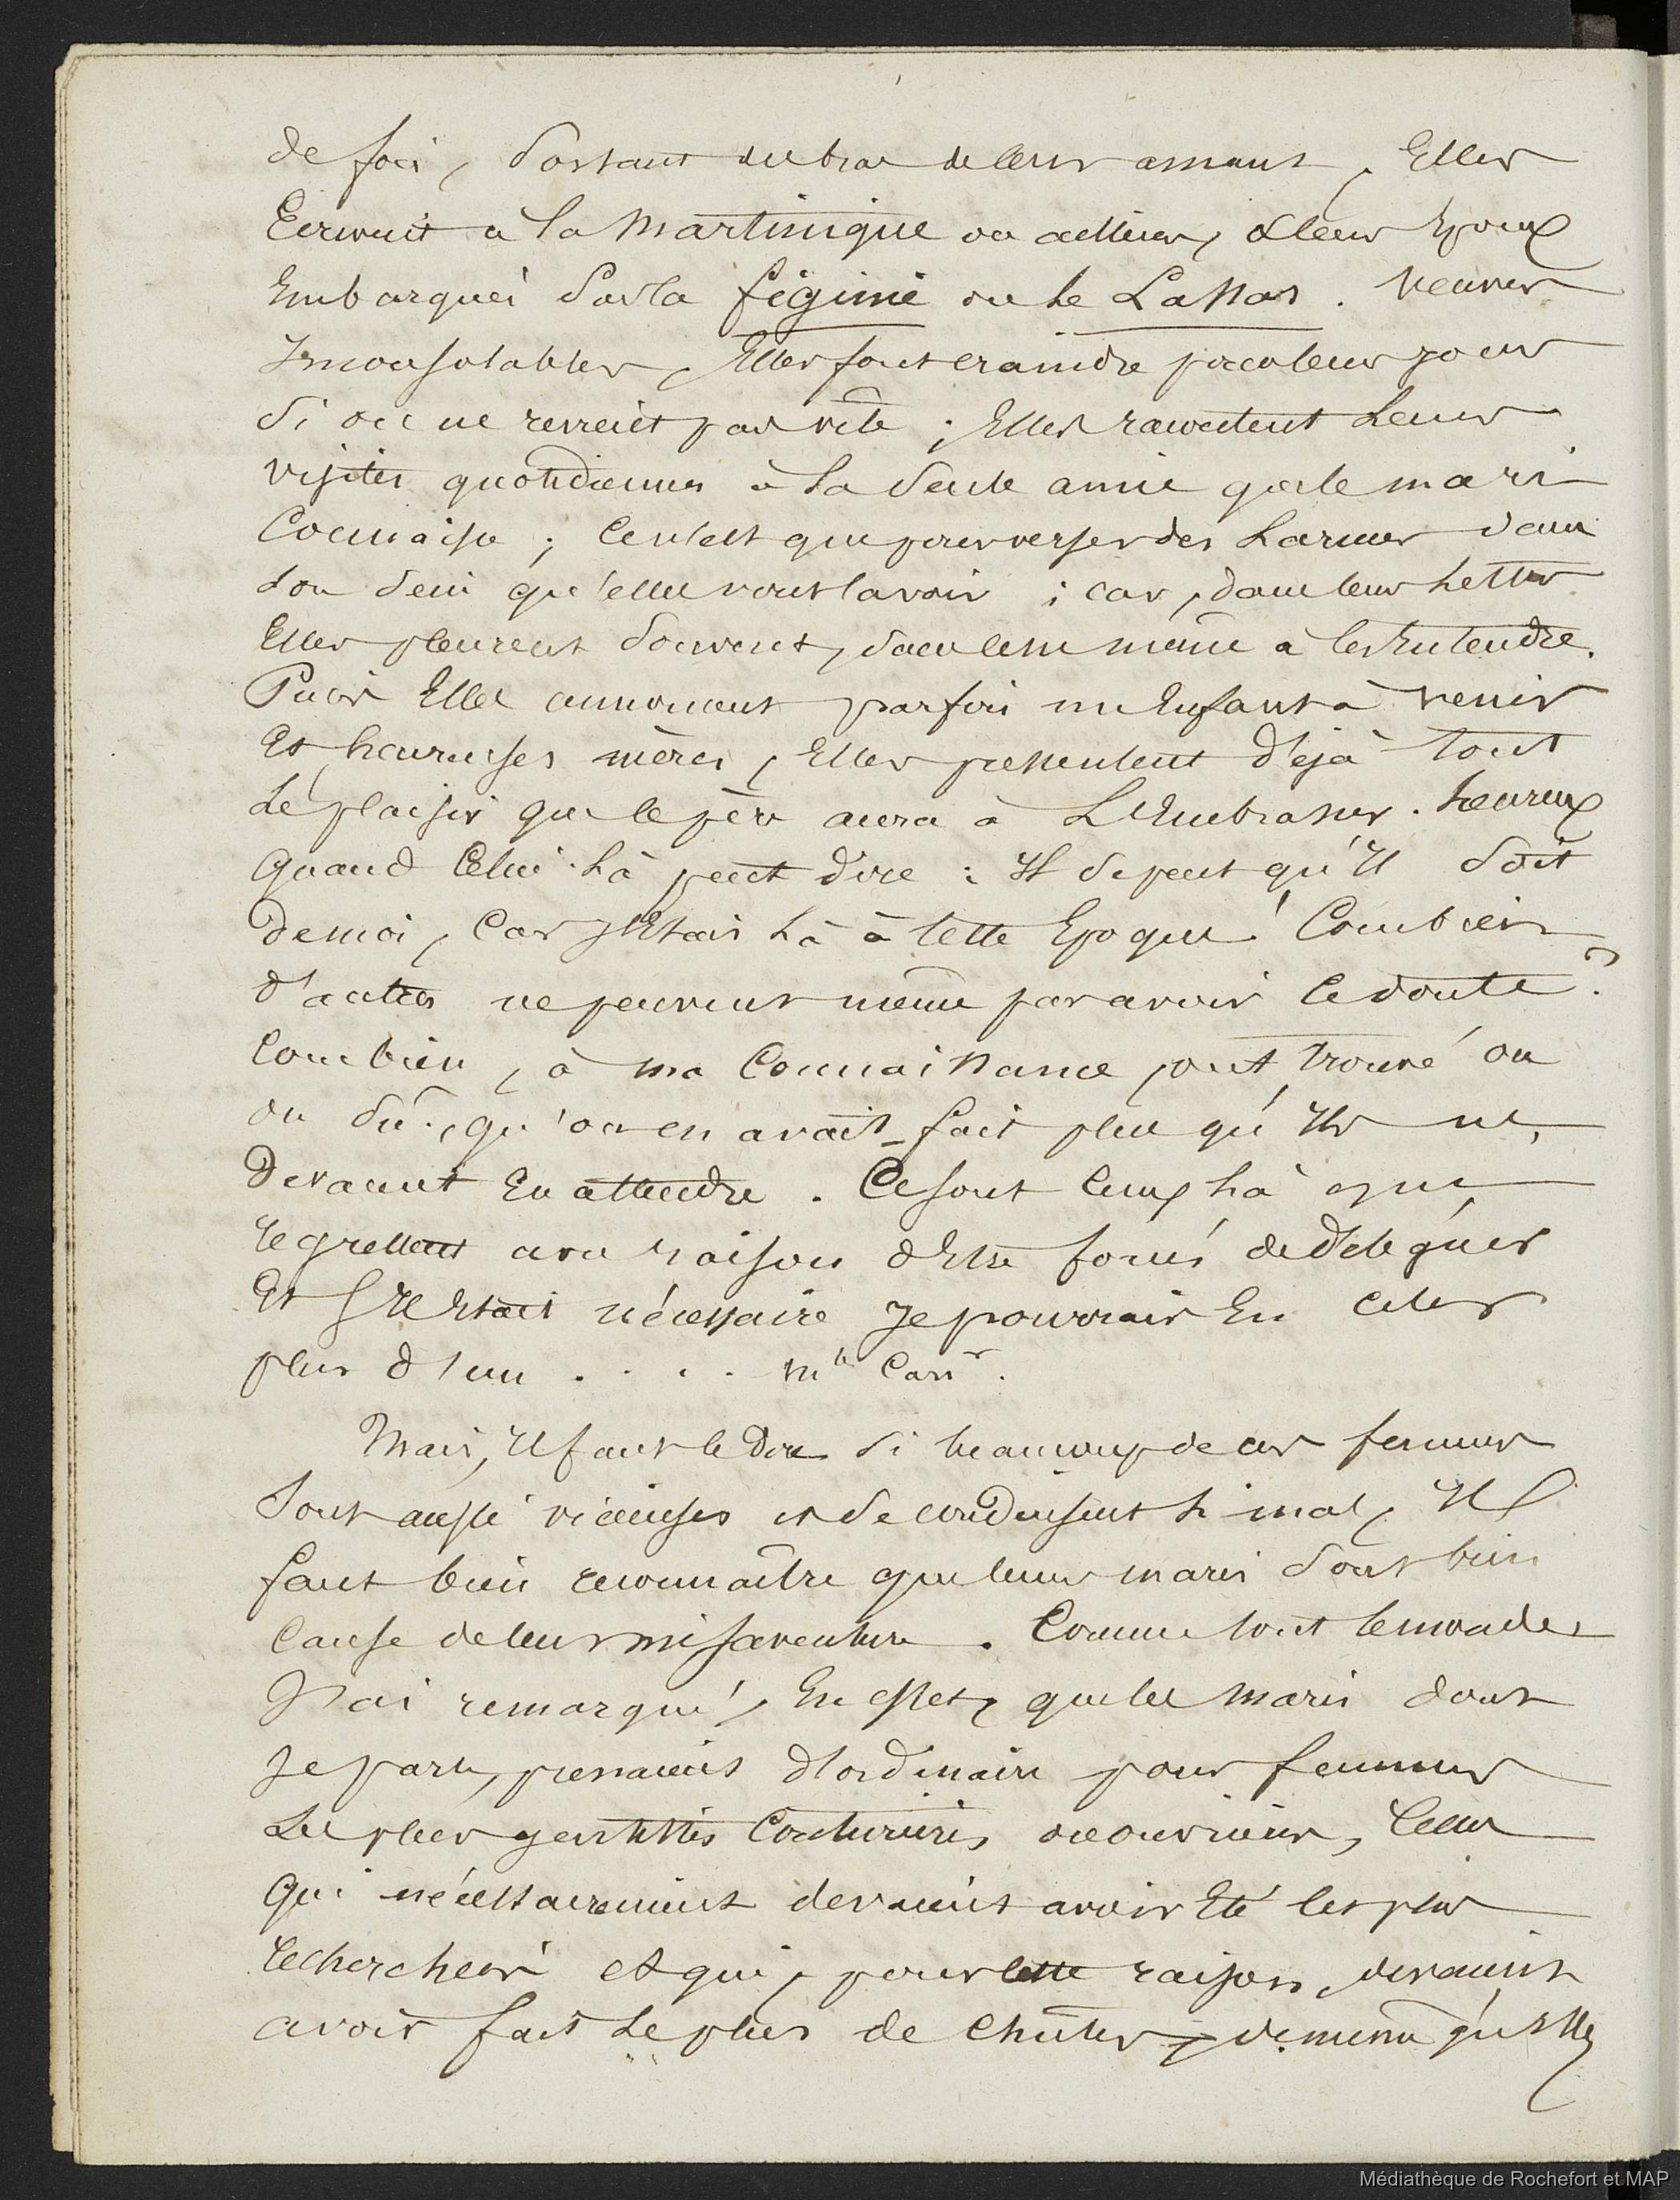 de fois, sortant du bras de leurs amants, Elles
Ecrivent à la Martinique ou ailleurs, à leur Epoux
Embarqués sur la Féginie ou le Lassas. Veuves
Inconsolables, Elles font craindre pour leurs jours
Si on ne revient pas vite; Elles racontent Leurs
visites quotidiennes à La Seule amie que le mari
Connaisse; Ce n'est que pour verser des Larmes dans
son sein qu'elles vont la voir; car, dans leurs Lettres
Elles pleurent souvent, dans leur même à les Entendre.
Puis Elles annoncent parfois un Enfant à venir
Et heureuses mères, Elles pressentent déjà tout
Le plaisir que le père aura à L'Embrasser. heureux
quand Celui-Là peut dire: Il se peut qu'Il soit
de moi, Car J'Etais Là à cette Epoque! Combien
d'autres ne peuvent même pas avoir ce doute?
Combien, à ma Connaissance, ont trouvé ou
ou su, qu'on en avait fait plus qu'Ils ne,
Devaient En attendre. Ce sont Ceux Là qui
regrettent avec raison d'Etre forcés de Déléguer
Et s'Il Etait nécessaire Je pourrais En Citer
plus d'un . . . . Mle Carr.
Mais, Il faut le Dire si beaucoup de ces femmes
Sont aussi vicieuses et se conduisent si mal, Il
faut bien reconnaître que leurs maris sont bien
Cause de leur mésaventure. Comme tout le monde
J'ai remarqué, En effet, que les Maris dont
Je parle, prenaient d'ordinaire pour femmes
Les plus gentilles Couturières ou ouvrières, Celles
Qui nécessairement devaient avoir Eté les plus
recherchées et qui, pour cette raison, devaient
avoir fait Le plus de Chutes, de même qu'Elles
Médiathèque de Rochefort et MAP